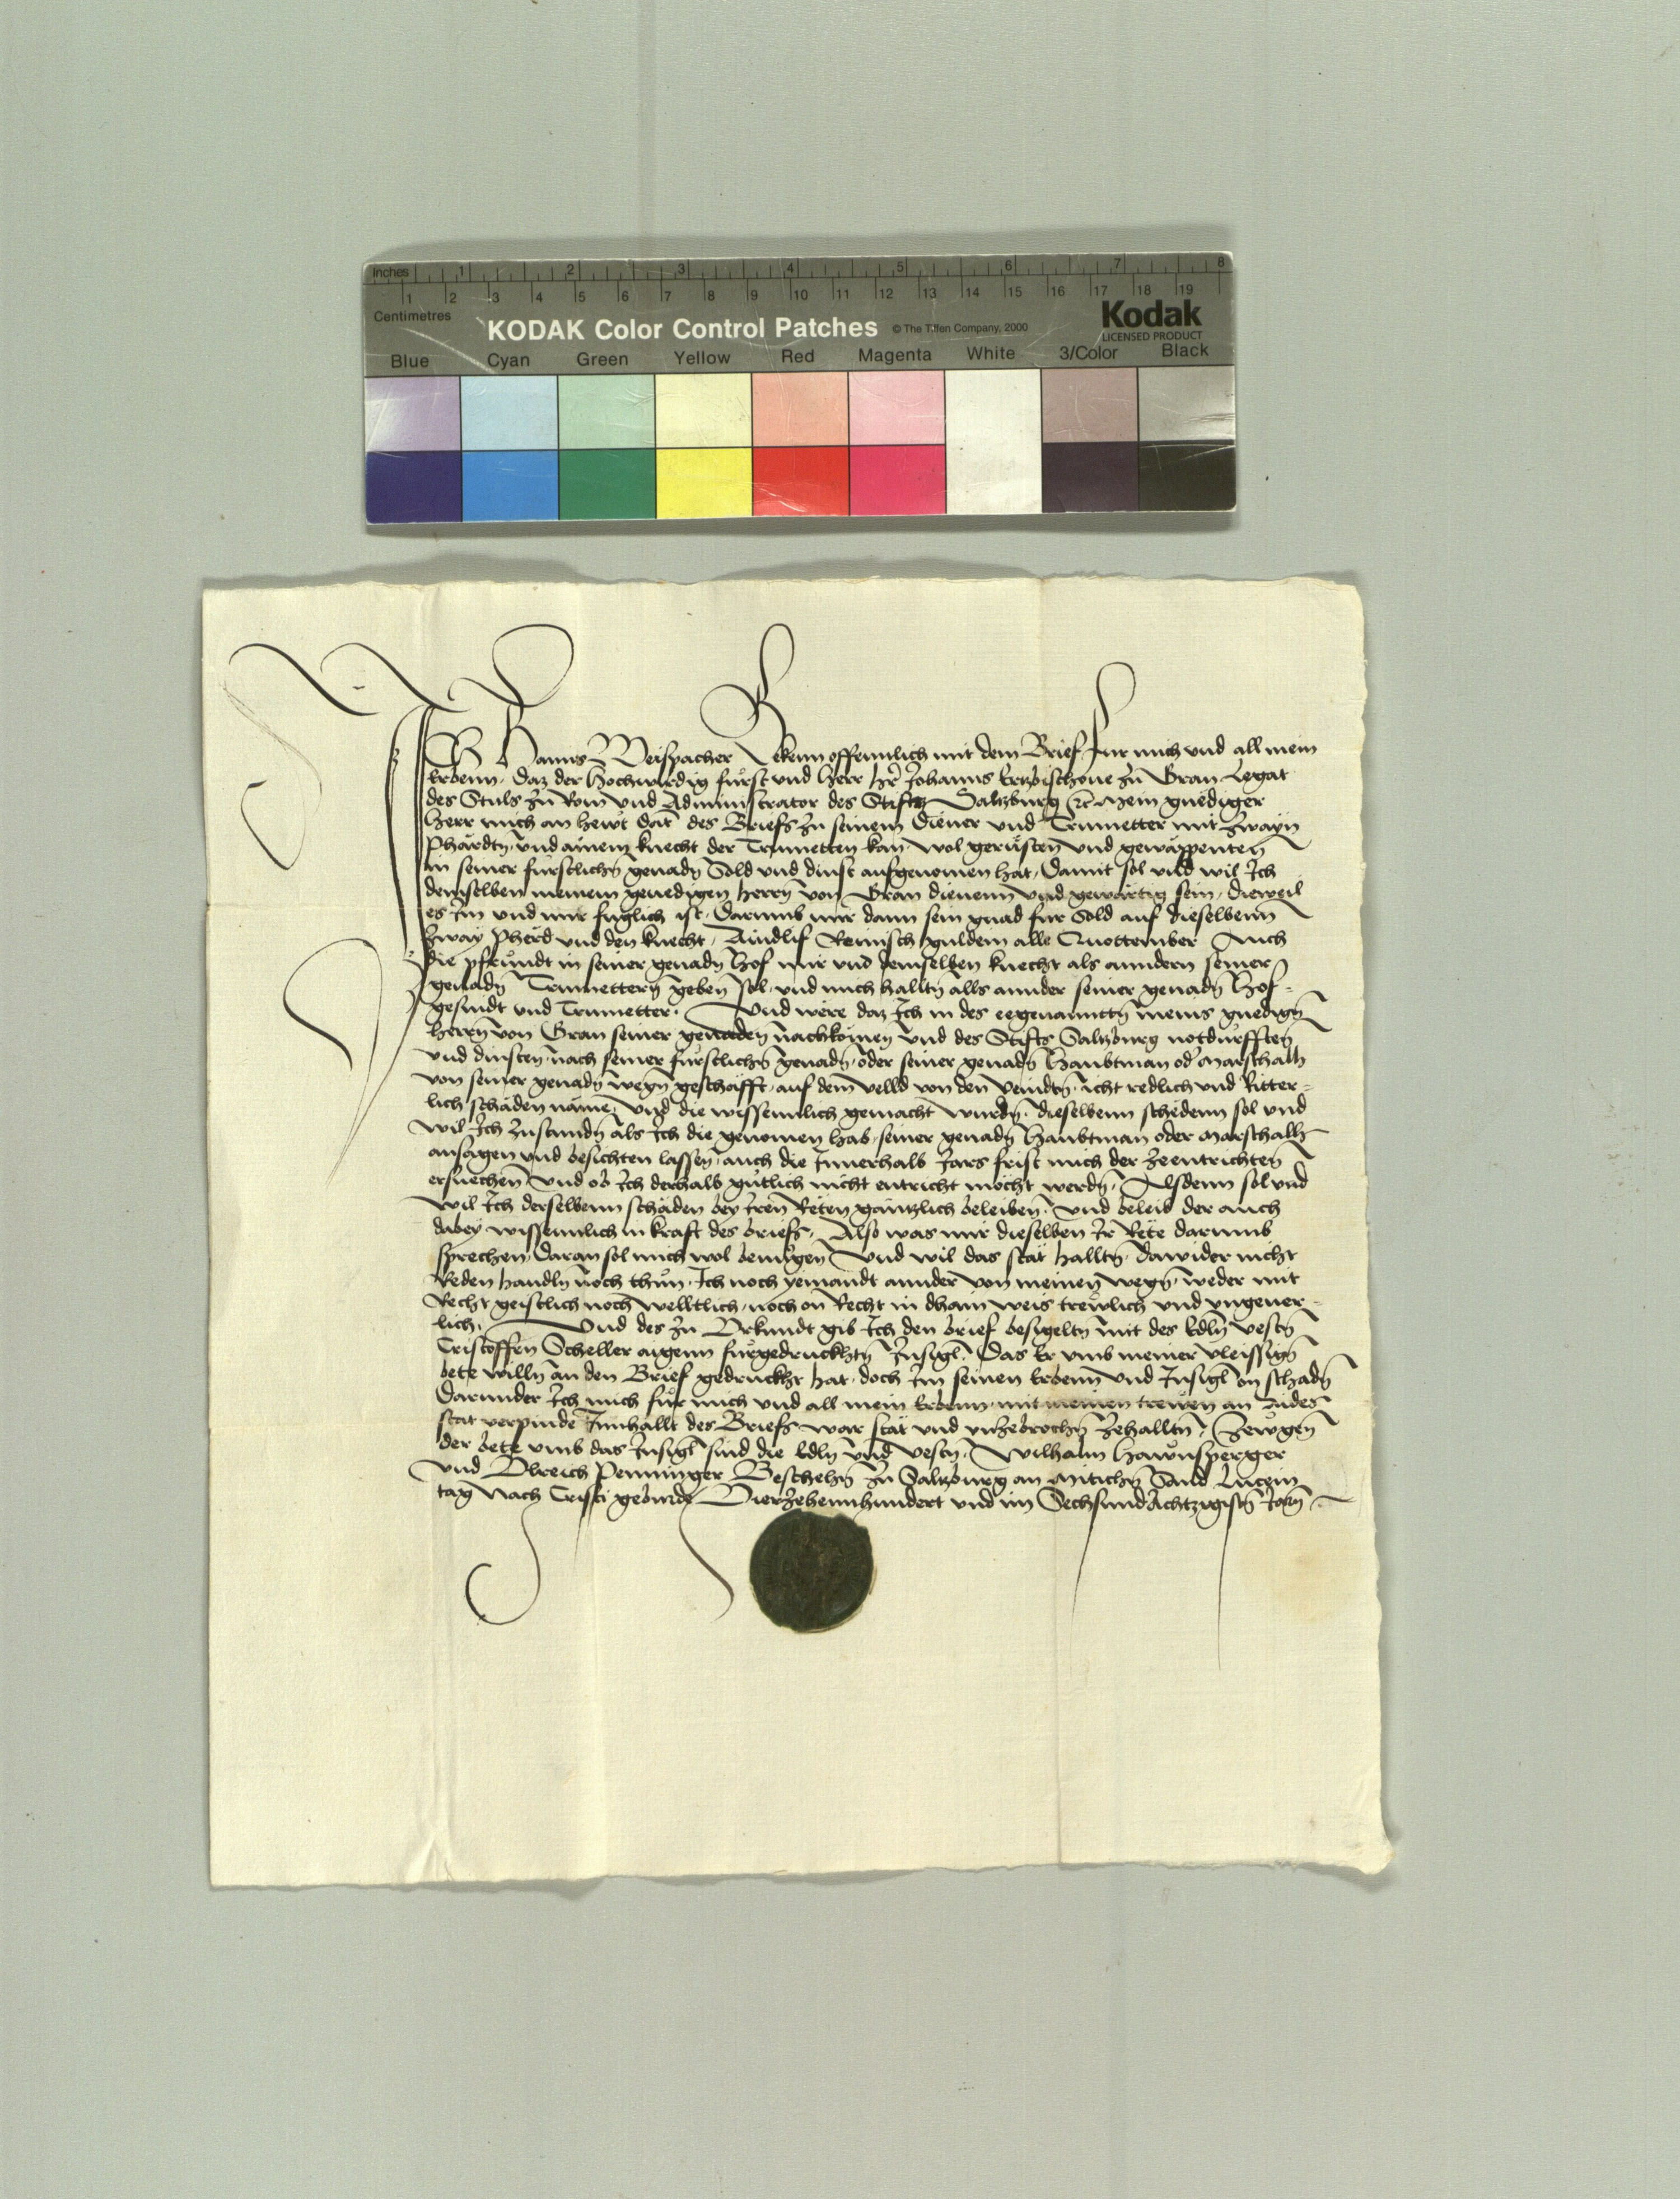 Inches 1 2 3 4 5 6 7 8
Centimetres 1 2 3 4 5 6 7 8 9 10 11 12 13 14 15 16 17 18 19
KODAK Color Control Patches © The Tiffen Company, 2000 Kodak
LICENSED PRODUCT
Blue Cyan Green Yellow Red Magenta White 3/Color Black
Ich Hanns Weispacher Bekenn offennlich mit dem Brief Fur mich und all mein
Erbenn, Daz der Hochwirdig furst und herr her Johanns Ertzbischoue zu Gran Legat
des Stuls zu Rom und Administrator des Stiffts Saltzburg mein gnediger
herr mich an hewt dat des Briefs zu seinem diener und Trumetter mit zwayn
Phärdtn und ainem knecht der Trumetten kan wol gerüsten und gewäppenten
in seiner furstlichn genadn Sold und dinst aufgenomen hat, Damit sol und wil Ich
demselben meinem genedigen herrn von Gran dienenn und gewärtig sein, dieweil
es Im und mir fuglich ist, Darumb mir dann sein gnad fur Sold auf dieselbenn
zway Pherd und den knecht, Aindlif Reinisch guldein alle Quottember Auch
die pfrundt in seiner genadn Hof mir und demselben knecht als anndern seiner
genadn Trumettern geben sol, und mich halltn alls annder seiner genadn Hof-
gesindt und Trumetter. Und were daz Ich in des eegenannttn meins gnedign
herrn von Gran seiner genaden nachkomen und des Stifts Saltzburg notdurfften
und dinsten, nach seiner furstlichn genadn, oder seiner genadn Haubtman od Marschalh
von seiner genadn wegn geschäfft, auf dem velld von den veindtn, icht redlich und Ritter-
lich schäden näme, und die wissennlich gemacht wurdn, dieselbenn schedenn sol und
wil Ich zustundn als Ich die genomen hab, seiner genadn Haubtman oder Marschalh
ansagen und besichten lassen, auch die Innerhalb Jars frist mich der zeentrichten
ersuechen und ob Ich derhalb gutlich nicht entricht möcht werdn, Alsdenn sol und
wil Ich derselbenn schäden bey Iren Reten gäntzlich beleiben, und beleib der auch
dabey wissennlich in kraft des briefs, Also was mir dieselben Ir Rete darumb
sprechen, daran sol mich wol benügen und wil das stät halltn, dawider nicht
Reden handln noch thun, Ich noch yemandt annder von meinen wegn, weder mit
Recht geistlich noch welltlich, noch on Recht in dhain weis trewlich und ungeuer-
lich. Und des zu Urkundt gib Ich den brief besigeltn mit des Edln vestn
Cristoffen Scheller aigenn furgedruckhtn Insigl, Das Er umb meiner vleissign
bete willn an den Brief gedruckht hat, doch Im seinen Erbenn und Insigl on schadn
Darunder Ich mich fur mich und all mein Erbenn mit meinen trewen an Aides
stat verpinde Innhallt des Briefs war stät und unzebrochn zehalltn, Zewgen
der bete umb das Insigl sind die Edln und vestn, Wilhalm Hawnsperger
und Ulreich Penninger Beschehn zu Saltzburg an Mitichn Sand Lucein
tag Nach Cristi geburde Vierzehennhundert und im Sechsundachtzigistn Jarn